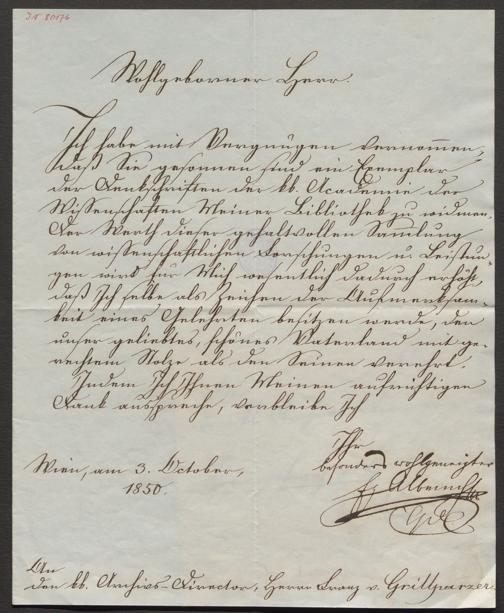 JN 80176
Wohlgeborner Herr!
Ich habe mit Vergnügen vernommen,
daß Sie gesonnen sind ein Exemplar
der Denkschriften der kk. Academie der
Wissenschaften Meiner Bibliothek zu widmen.
Der Werth dieser gehaltvollen Samlung
von wissenschaftlichen Forschungen u. Leistun-
gen wird für Mich wesentlich dadurch erhöht,
daß Ich selbe als Zeichen der Aufmerksam-
keit eines Gelehrten besitzen werde, den
unser geliebtes, schönes Vaterland mit ge-
rechtem Stolze als den Seinen verehrt.
Indem Ich Ihnen Meinen aufrichtigen
Dank ausspreche, verbleibe Ich
Ihr
besonders wohlgeneigter
Wien, am 3. October,
1850.
An
den kk. Archivs-Director, Herrn Franz v. Grillparzer